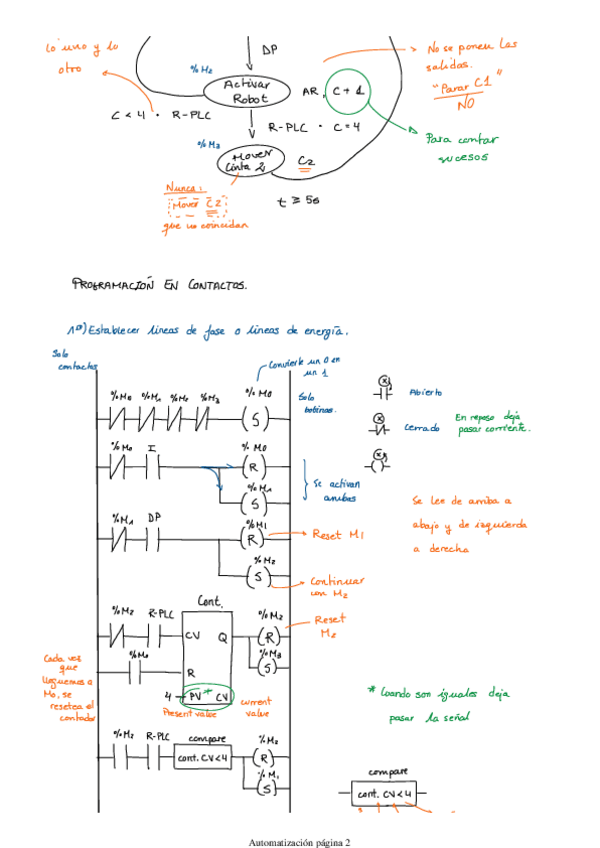 Lo uno y lo
otro
DP
No se ponen las
salidas.
"Parar C1"
NO
%M2
Activar
Robot
AR, C+1
C < 4 · R-PLC
R-PLC · C=4
Para contar
sucesos
%M3
Mover
Cinta 2
C2
Nunca:
Mover C2
que no coincidan
t ≥ 5s
PROGRAMACIÓN EN CONTACTOS.
1º) Establecer líneas de fase o líneas de energía.
Solo
contactos
Convierte un 0 en
un 1
%M0 %M1 %M2 %M3 %M0
(S)
Solo
bobinas.
Abierto
Cerrado
En reposo deja
pasar corriente.
%M0 I %M0
(R)
%M1
(S)
Se activan
ambas
Se lee de arriba a
abajo y de izquierda
a derecha
%M1 DP %M1
(R)
Reset M1
%M2
(S)
Continuar
con M2
Cont.
%M2 R-PLC
CV Q
%M2
(R)
Reset
M2
%M3
(S)
%M0
R
Cada vez
que
lleguemos a
M0, se
resetea el
contador
4 PV * CV
Present value
current
value
* Cuando son iguales deja
pasar la señal
%M2 R-PLC
compare
cont. CV<4
%M2
(R)
%M1
(S)
compare
cont. CV<4
Automatización página 2